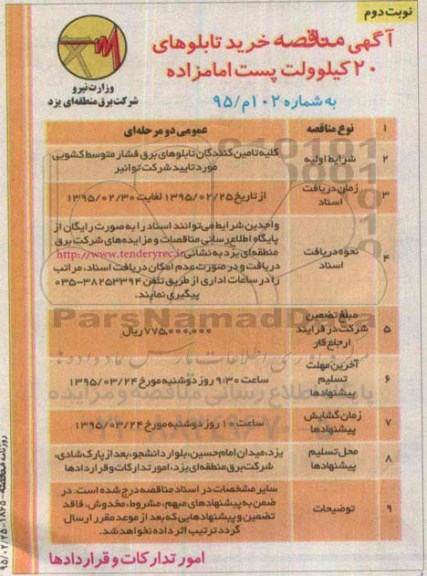 نوبت دوم
آگهی مناقصه خرید تابلوهای
۲۰ کیلوولت پست امامزاده
به شماره ۱۰۲م/۹۵
وزارت نیرو
شرکت برق منطقه‌ای یزد
۱ نوع مناقصه عمومی دو مرحله‌ای
۲ شرایط اولیه کلیه تامین کنندگان تابلوهای برق فشار متوسط کشویی
مورد تایید شرکت توانیر
۳ زمان دریافت
اسناد
از تاریخ ۱۳۹۵/۰۲/۲۵ لغایت ۱۳۹۵/۰۲/۳۰
۴ نحوه دریافت
اسناد
واجدین شرایط می‌توانند اسناد را به صورت رایگان از
پایگاه اطلاع رسانی مناقصات و مزایده‌های شرکت برق
منطقه‌ای یزد به نشانی http://www.tenderyrec.ir
دریافت و در صورت عدم امکان دریافت اسناد، مراتب
را در ساعات اداری از طریق تلفن ۳۸۲۵۳۳۹۴-۰۳۵
پیگیری نمایند.
۵ مبلغ تضمین
شرکت در فرایند
ارجاع کار
۷۷۵,۰۰۰,۰۰۰ ریال
۶ آخرین مهلت
تسلیم
پیشنهادها
ساعت ۹:۳۰ روز دوشنبه مورخ ۱۳۹۵/۰۳/۲۴
۷ زمان گشایش
پیشنهادها
ساعت ۱۰ روز دوشنبه مورخ ۱۳۹۵/۰۳/۲۴
۸ محل تسلیم
پیشنهادها
یزد، میدان امام حسین، بلوار دانشجو، بعد از پارک شادی،
شرکت برق منطقه‌ای یزد، امور تدارکات و قراردادها
۹ توضیحات
سایر مشخصات در اسناد مناقصه درج شده است. در
ضمن به پیشنهادهای مبهم، مشروط، مخدوش، فاقد
تضمین و پیشنهادهایی که بعد از موعد مقرر ارسال
گردد ترتیب اثر داده نخواهد شد.
امور تدارکات و قراردادها
ParsNamadData